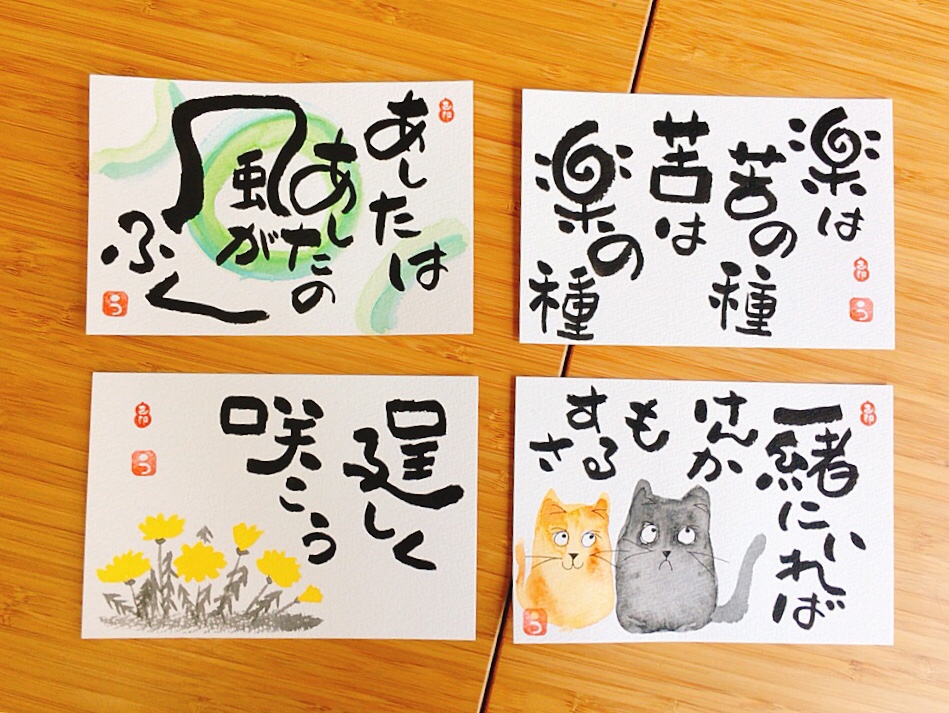 あしたは
あしたの
風が
ふく
楽は
苦の種
苦は
楽の種
逞しく
咲こう
一緒にいれば
けんか
も
する
さ